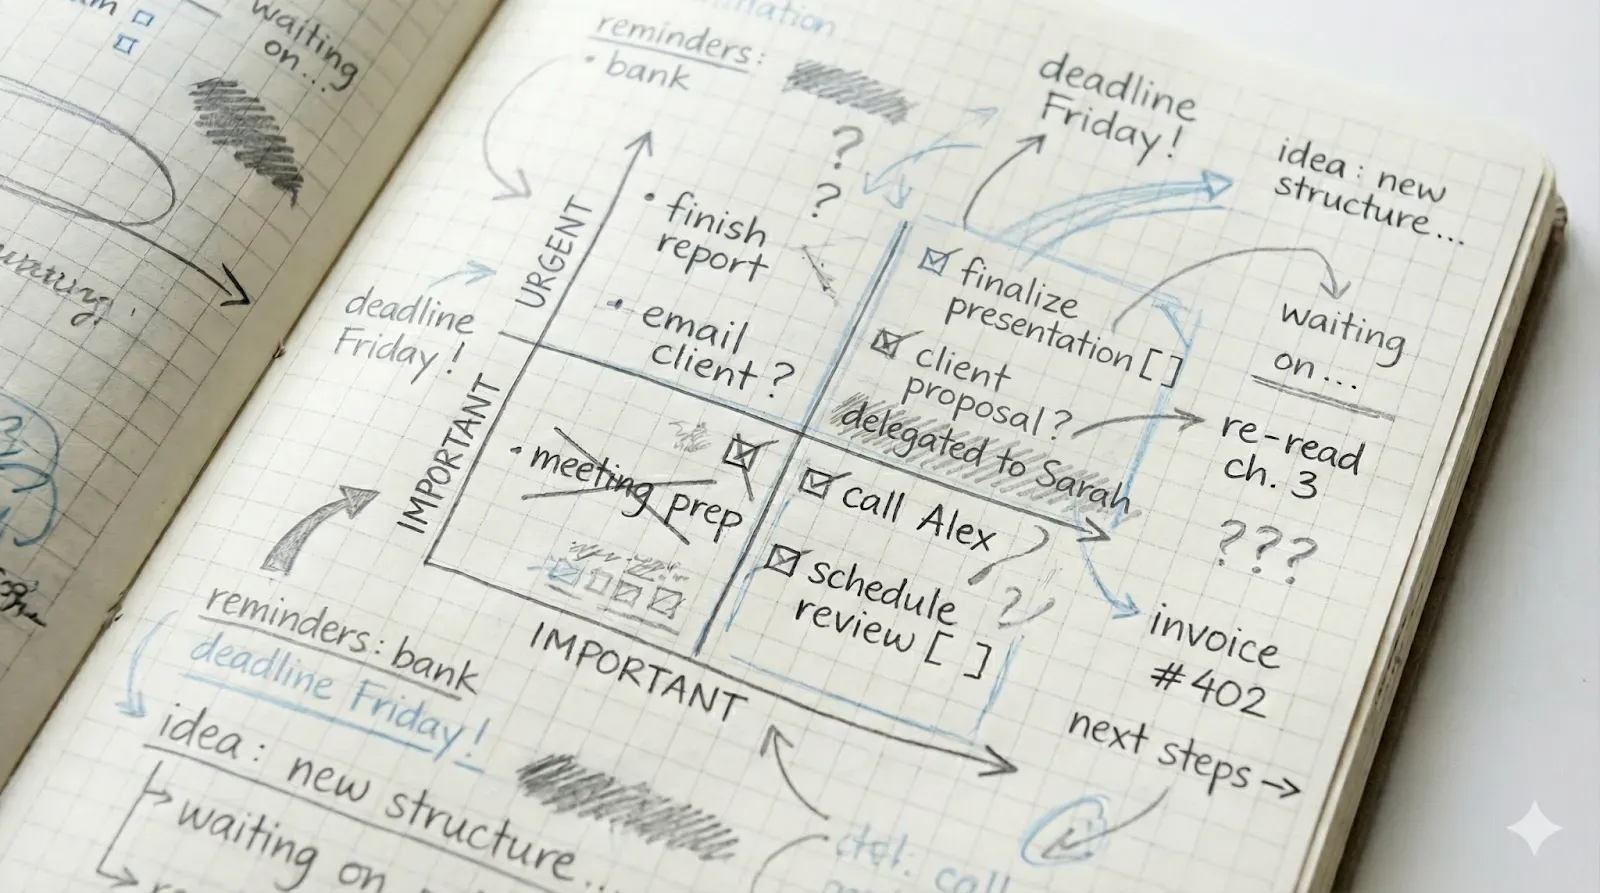 waiting
on...
reminders:
• bank
deadline
Friday!
idea: new
structure...
?
?
URGENT
• finish
report
• email
client?
deadline
Friday!
finalize
presentation [ ]
client
proposal?
delegated to Sarah
waiting
on...
re-read
ch. 3
???
IMPORTANT
• meeting prep
call Alex
?
schedule
review [ ]
?
invoice
#402
IMPORTANT
next steps →
reminders: bank
deadline Friday!
idea: new structure...
waiting on
call